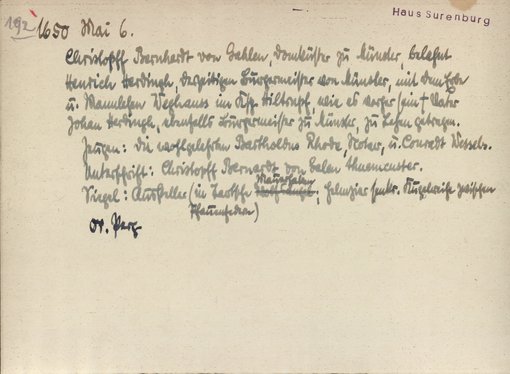 192
Haus Surenburg
1650 Mai 6.
Christopff Bernhardt von Gahlen, Domküster zu Münster, belehnt
Henrich Herdingh, derzeitigen Bürgermeister von Münster, mit dem Erbe
u. Mannlehen Deghaus im Ksp. Hiltrupf, wie es vorher sein † Vater
Johan Herdingh, ebenfalls Bürgermeister zu Münster, zu Lehen getragen.
Zeugen: die wohlgelehrten Bartholdus Rhode, Notar, u. Conradt Wessels.
Unterschrift: Christopff Bernardt von Galen
Siegel: Aussteller (in Kartsche Helmzier senkr. Kugelreihe zwischen
Pfauenfedern)
Or. Perg